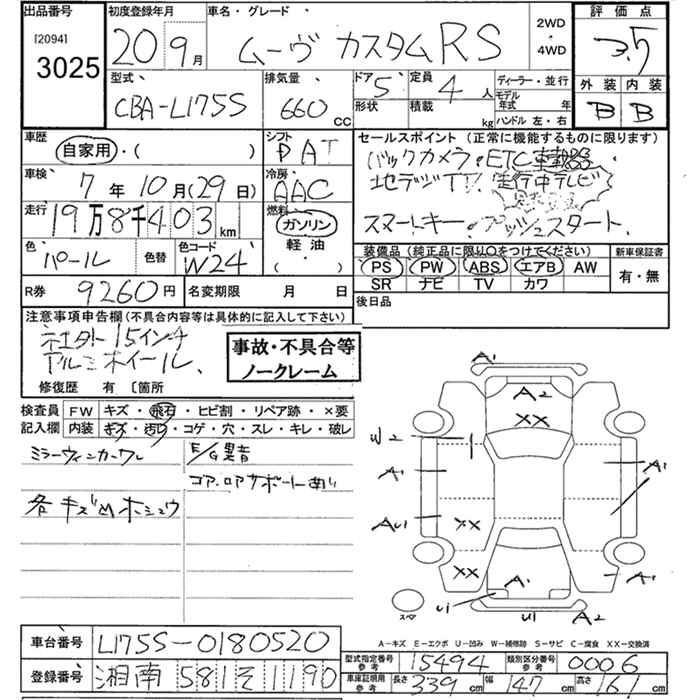 出品番号 初度登録年月 車名・グレード 2WD・4WD 評価点
[2094] 3025 20年9月 ムーヴ カスタム RS 3.5
型式 排気量 ドア 定員 ディーラー・並行 外装 内装
CBA-L175S 660 CC 5 4人 モデル年式 年 B B
形状 積載 kg ハンドル 左・右
車歴 シフト セールスポイント(正常に機能するものに限ります)
自家用・( ) AT バックカメラ・ETC
車検 冷房 地デジTV. 走行中テレビ
7年10月(29日) AAC
走行 燃料 スマートキー.プッシュスタート.
19万8千403km ガソリン
軽油
( )
色 色替 色コード 装備品(純正品に限り○をつけてください) 新車保証書
パール W24 PS PW ABS エアB AW 有・無
SR ナビ TV カワ
R券 9260円 名変期限 月 日 後日品
注意事項申告欄(不具合内容等は具体的に記入して下さい)
社外15インチ
アルミホイール.
事故・不具合等
ノークレーム
修復歴 有 〔箇所
検査員 FW キズ・飛石・ヒビ割・リペア跡・×要
記入欄 内装 キズ・汚れ・コゲ・穴・スレ・キレ・破レ
ミラーウィンカーワレ E/G異音
コアロアサポートあり
各キズ凹ホシュウ
A1
A2
XX
W2
A1 A1
AU1 XX
XX A1
U1 U1 A2
スペア
A-キズ E-エクボ U-凹み W-補修跡 S-サビ C-腐食 XX-交換済
車台番号 L175S-0180520
型式指定番号 参考 15494 類別区分番号 参考 0006
登録番号 湘南 581 そ 1190
車庫証明用 参考 長さ 339cm 幅 147cm 高さ 161cm